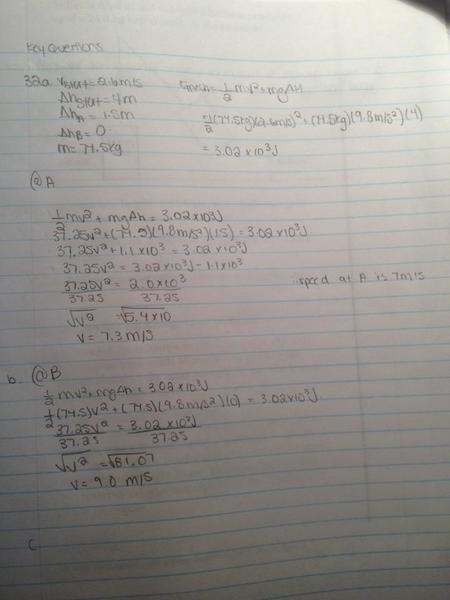 Key Questions
32a. vstart = 2.6 m/s
Δhstart = 4m
ΔhA = 1.5m
ΔhB = 0
m = 74.5kg
= 1/2 mv² + mgΔh
= 1/2 (74.5kg)(2.6m/s)² + (74.5kg)(9.8m/s²)(4)
= 3.02 x 10³J
@ A
1/2 mv² + mgΔh = 3.02x10³J
37.25v² + (74.5)(9.8m/s²)(1.5) = 3.02x10³J
37.25v² + 1.1x10³ = 3.02x10³J
37.25v² = 3.02x10³J - 1.1x10³
37.25v² = 2.0x10³
37.25 37.25
√v² = √5.4x10
v = 7.3 m/s
∴ speed at A is 7m/s
b. @ B
1/2 mv² + mgΔh = 3.02x10³J
1/2 (74.5)v² + (74.5)(9.8m/s²)(0) = 3.02x10³J
37.25v² = 3.02x10³J
37.25 37.25
√v² = √81.07
v = 9.0 m/s
C